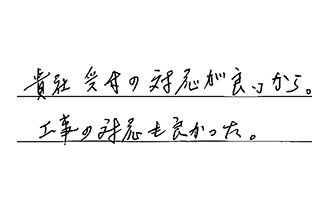 貴社受付の対応が良いから。
工事の対応も良かった。